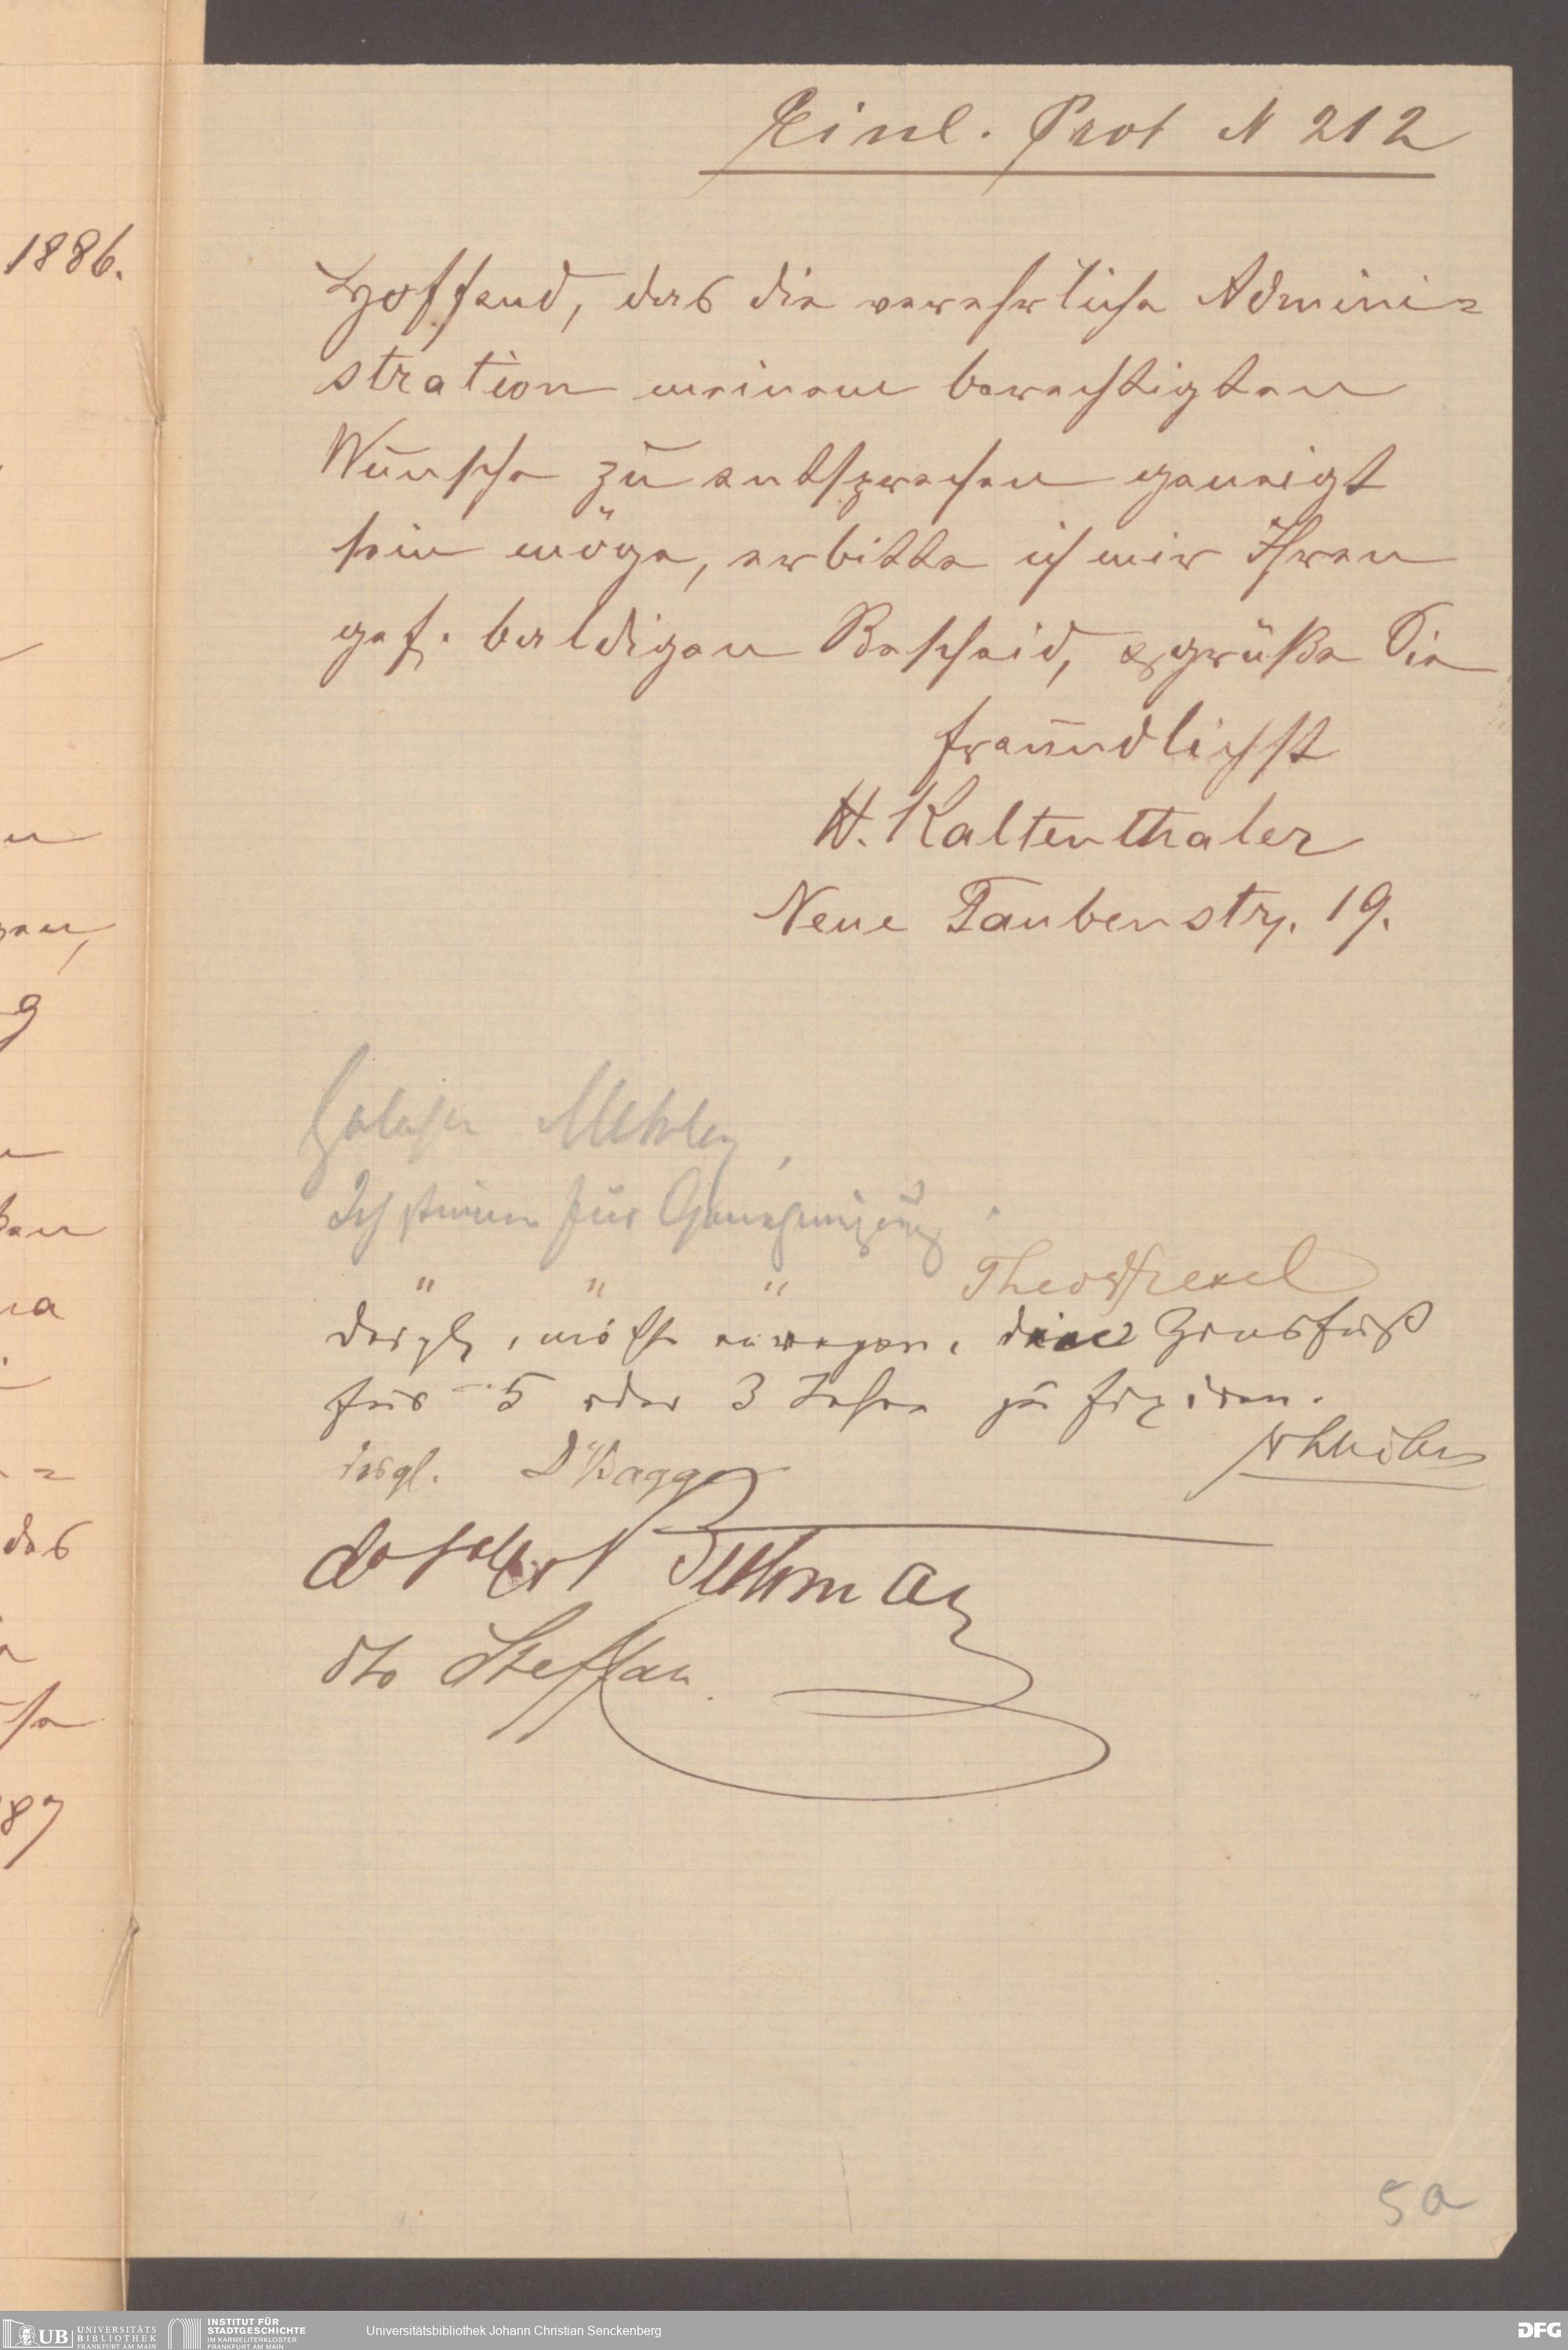 Einl. Prot N 212
1886.
Hoffend, das die verehrliche Admini=
stration meinem berechtigten
Wunsche zu entsprechen geneigt
sein möge, erbitte ich mir Ihren
gef. baldigen Bescheid, & grüße Sie
freundlichst
H. Kaltenthaler
Neue Taubenstr. 19.
Ich stimme für Genehmigung.
" " " Theo
desgl., möchte erwägen, den Zinsfuß
für 5 oder 3 Jahre zu fixiren.
desgl. Dr Bagge
dto Steffan.
87
5a
UB UNIVERSITÄTS
BIBLIOTHEK
FRANKFURT AM MAIN
INSTITUT FÜR
STADTGESCHICHTE
IM KARMELITERKLOSTER
FRANKFURT AM MAIN
Universitätsbibliothek Johann Christian Senckenberg
DFG